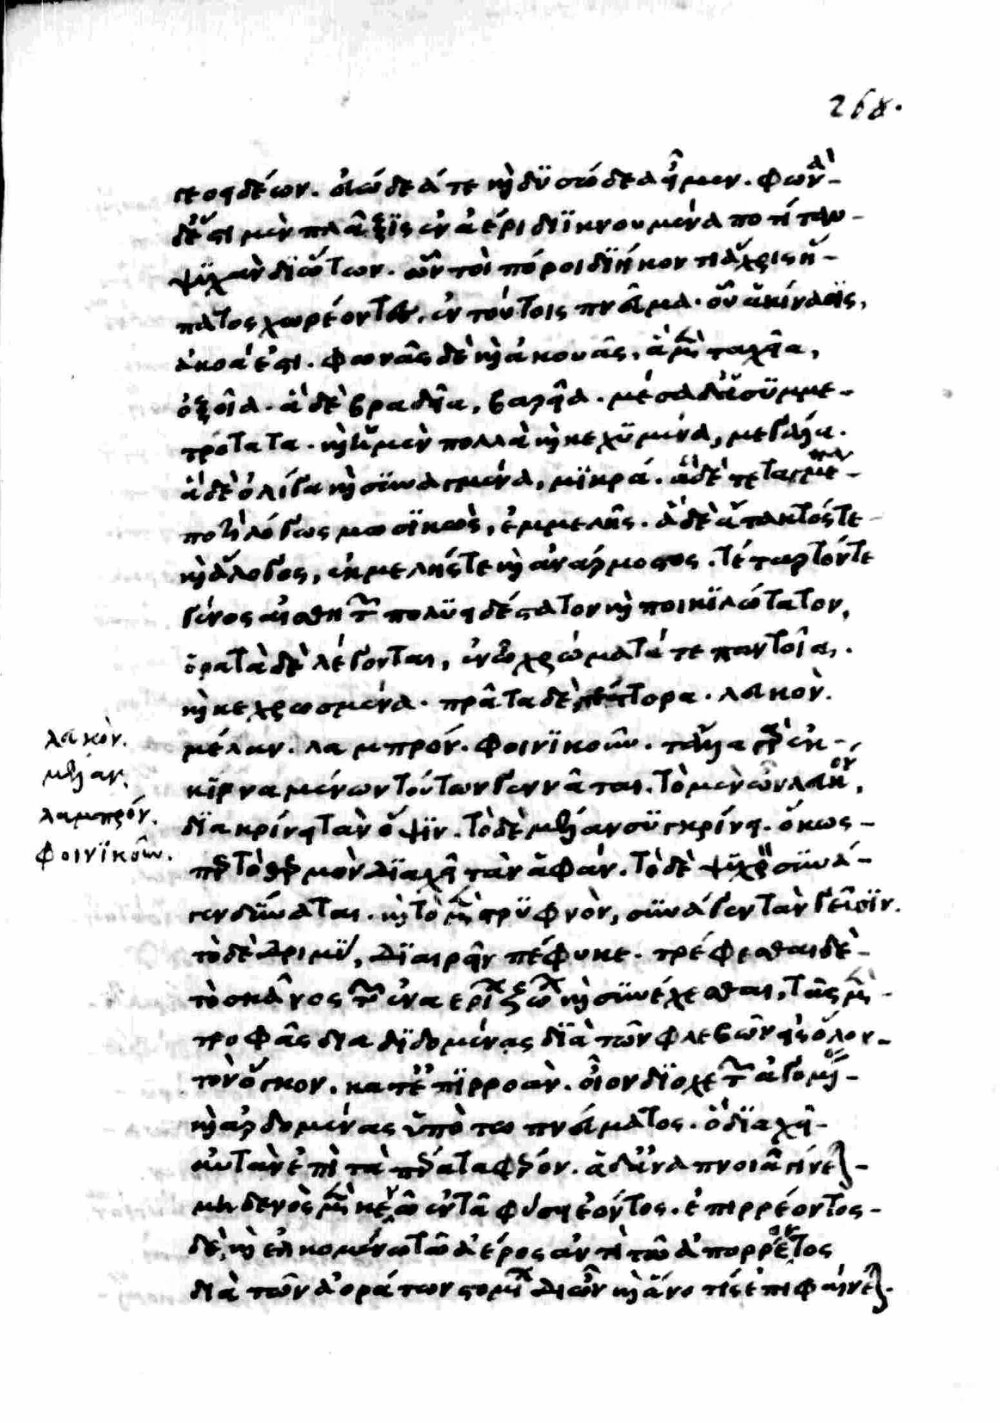 268.
γεος δέων. εὐώδεά τε καὶ δυσώδεα εἶμεν. φωνὰ
δ' ἐστὶ μὲν πλᾶξις ἐν ἀέρι διϊκνουμένα ποτὶ τὰν
ψυχὰν δι' ὤτων. ὧν τοὶ πόροι διήκοντι ἄχρις ἥ-
πατος χωρέοντες. ἐν τούτοις πνεῦμα. οὗ ἁ κίνασις,
ἀκοά ἐστι. φωνᾶς δὲ καὶ ἀκουᾶς, ἁ μὲν ταχεῖα,
ὀξεῖα. ἁ δὲ βραδεῖα, βαρεῖα. μέσα δ' ἁ συμμε-
τρότατα. καὶ ἁ μὲν πολλὰ καὶ κεχυμένα, μεγάλα.
ἁ δὲ ὀλίγα καὶ συναγμένα, μικρά. ἁ δὲ τεταγμένα
ποτὶ λόγως μωσικώς, ἐμμελής. ἁ δὲ ἄτακτός τε
καὶ ἄλογος, ἐκμελής τε καὶ ἀνάρμοστος. τέταρτόν τε
γένος αἰσθητῶν πολυειδέστατον καὶ ποικιλώτατον,
ὁρατὰ δὲ λέγονται, ἐν ᾧ χρώματά τε παντοῖα,
καὶ κεχρωσμένα. πρᾶτα δὲ τέτορα. λευκόν.
μέλαν. λαμπρόν. φοινικοῦν. τἄλλα γὰρ ἐκ
κιρναμένων τούτων γεννᾶται. τὸ μὲν ὦν λευκόν,
διακρίνει τὰν ὄψιν. τὸ δὲ μέλαν συγκρίνει. ὅκως
περ τὸ θερμὸν διαχεῖ τὰν ἁφάν. τὸ δὲ ψυχρὸν συνά-
γεν δύναται. καὶ τὸ μὲν στρυφνὸν, συνάγεν τὰν γεῦσιν.
τὸ δὲ δριμὺ, διαιρεῖν πέφυκε. τρέφεσθαι δὲ
τὸ σκᾶνος τῶν ἐναερίων ζώων καὶ συνέχεσθαι, τᾶς μὲν
τροφᾶς διαδιδομένας διὰ τῶν φλεβῶν εἰς ὅλον
τὸν ὄγκον. κατ' ἐπιρροὰν. οἷον δι' ὀχετῶν ἀγομένας
καὶ ἀρδομένας ὑπὸ τω πνεύματος. ὃ διαχεῖ
αὐτὰν ἐπὶ τὰ πέρατα φέρον. ἁ δ' ἀναπνοιὰ γίνεται
μηδενὸς μὲν κενεῶ ἐν τᾷ φύσει ἐόντος. ἐπιρρέοντος
δὲ, καὶ ἑλκομένω τῶ ἀέρος ἀντὶ τῶ ἀπορρέοντος
διὰ τῶν ἀοράτων στομίων δι' ὧν καὶ ἁ νοτὶς ἐπιφαίνεται.
λευκόν.
μέλαν.
λαμπρόν.
φοινικοῦν.